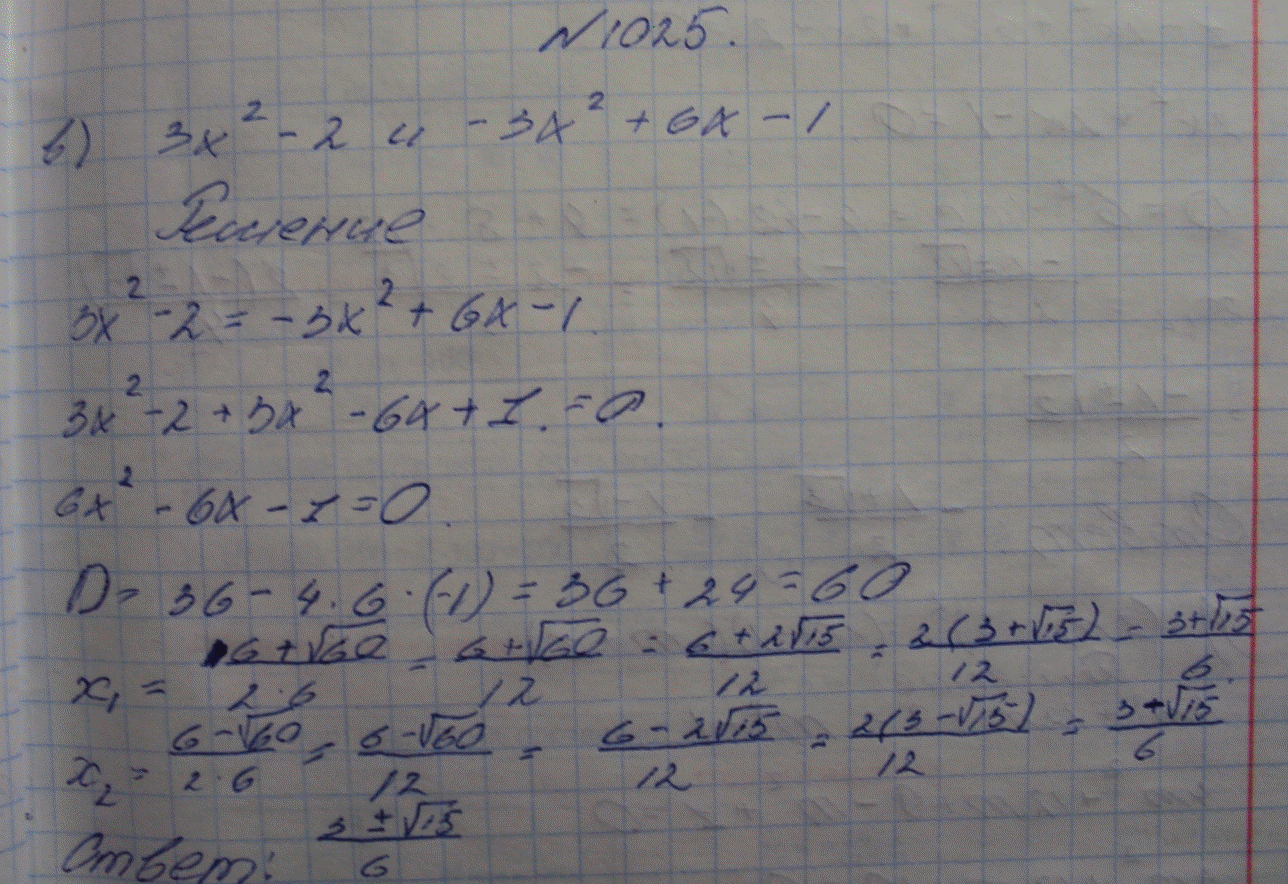 №1025.
в) 3x² - 2 и -3x² + 6x - 1
Решение
3x² - 2 = -3x² + 6x - 1.
3x² - 2 + 3x² - 6x + 1. = 0.
6x² - 6x - 1 = 0.
D = 36 - 4·6·(-1) = 36 + 24 = 60
x₁ = (6+√60)/(2·6) = (6+√60)/12 = (6+2√15)/12 = 2(3+√15)/12 = (3+√15)/6.
x₂ = (6-√60)/(2·6) = (6-√60)/12 = (6-2√15)/12 = 2(3-√15)/12 = (3-√15)/6
Ответ: (3±√15)/6